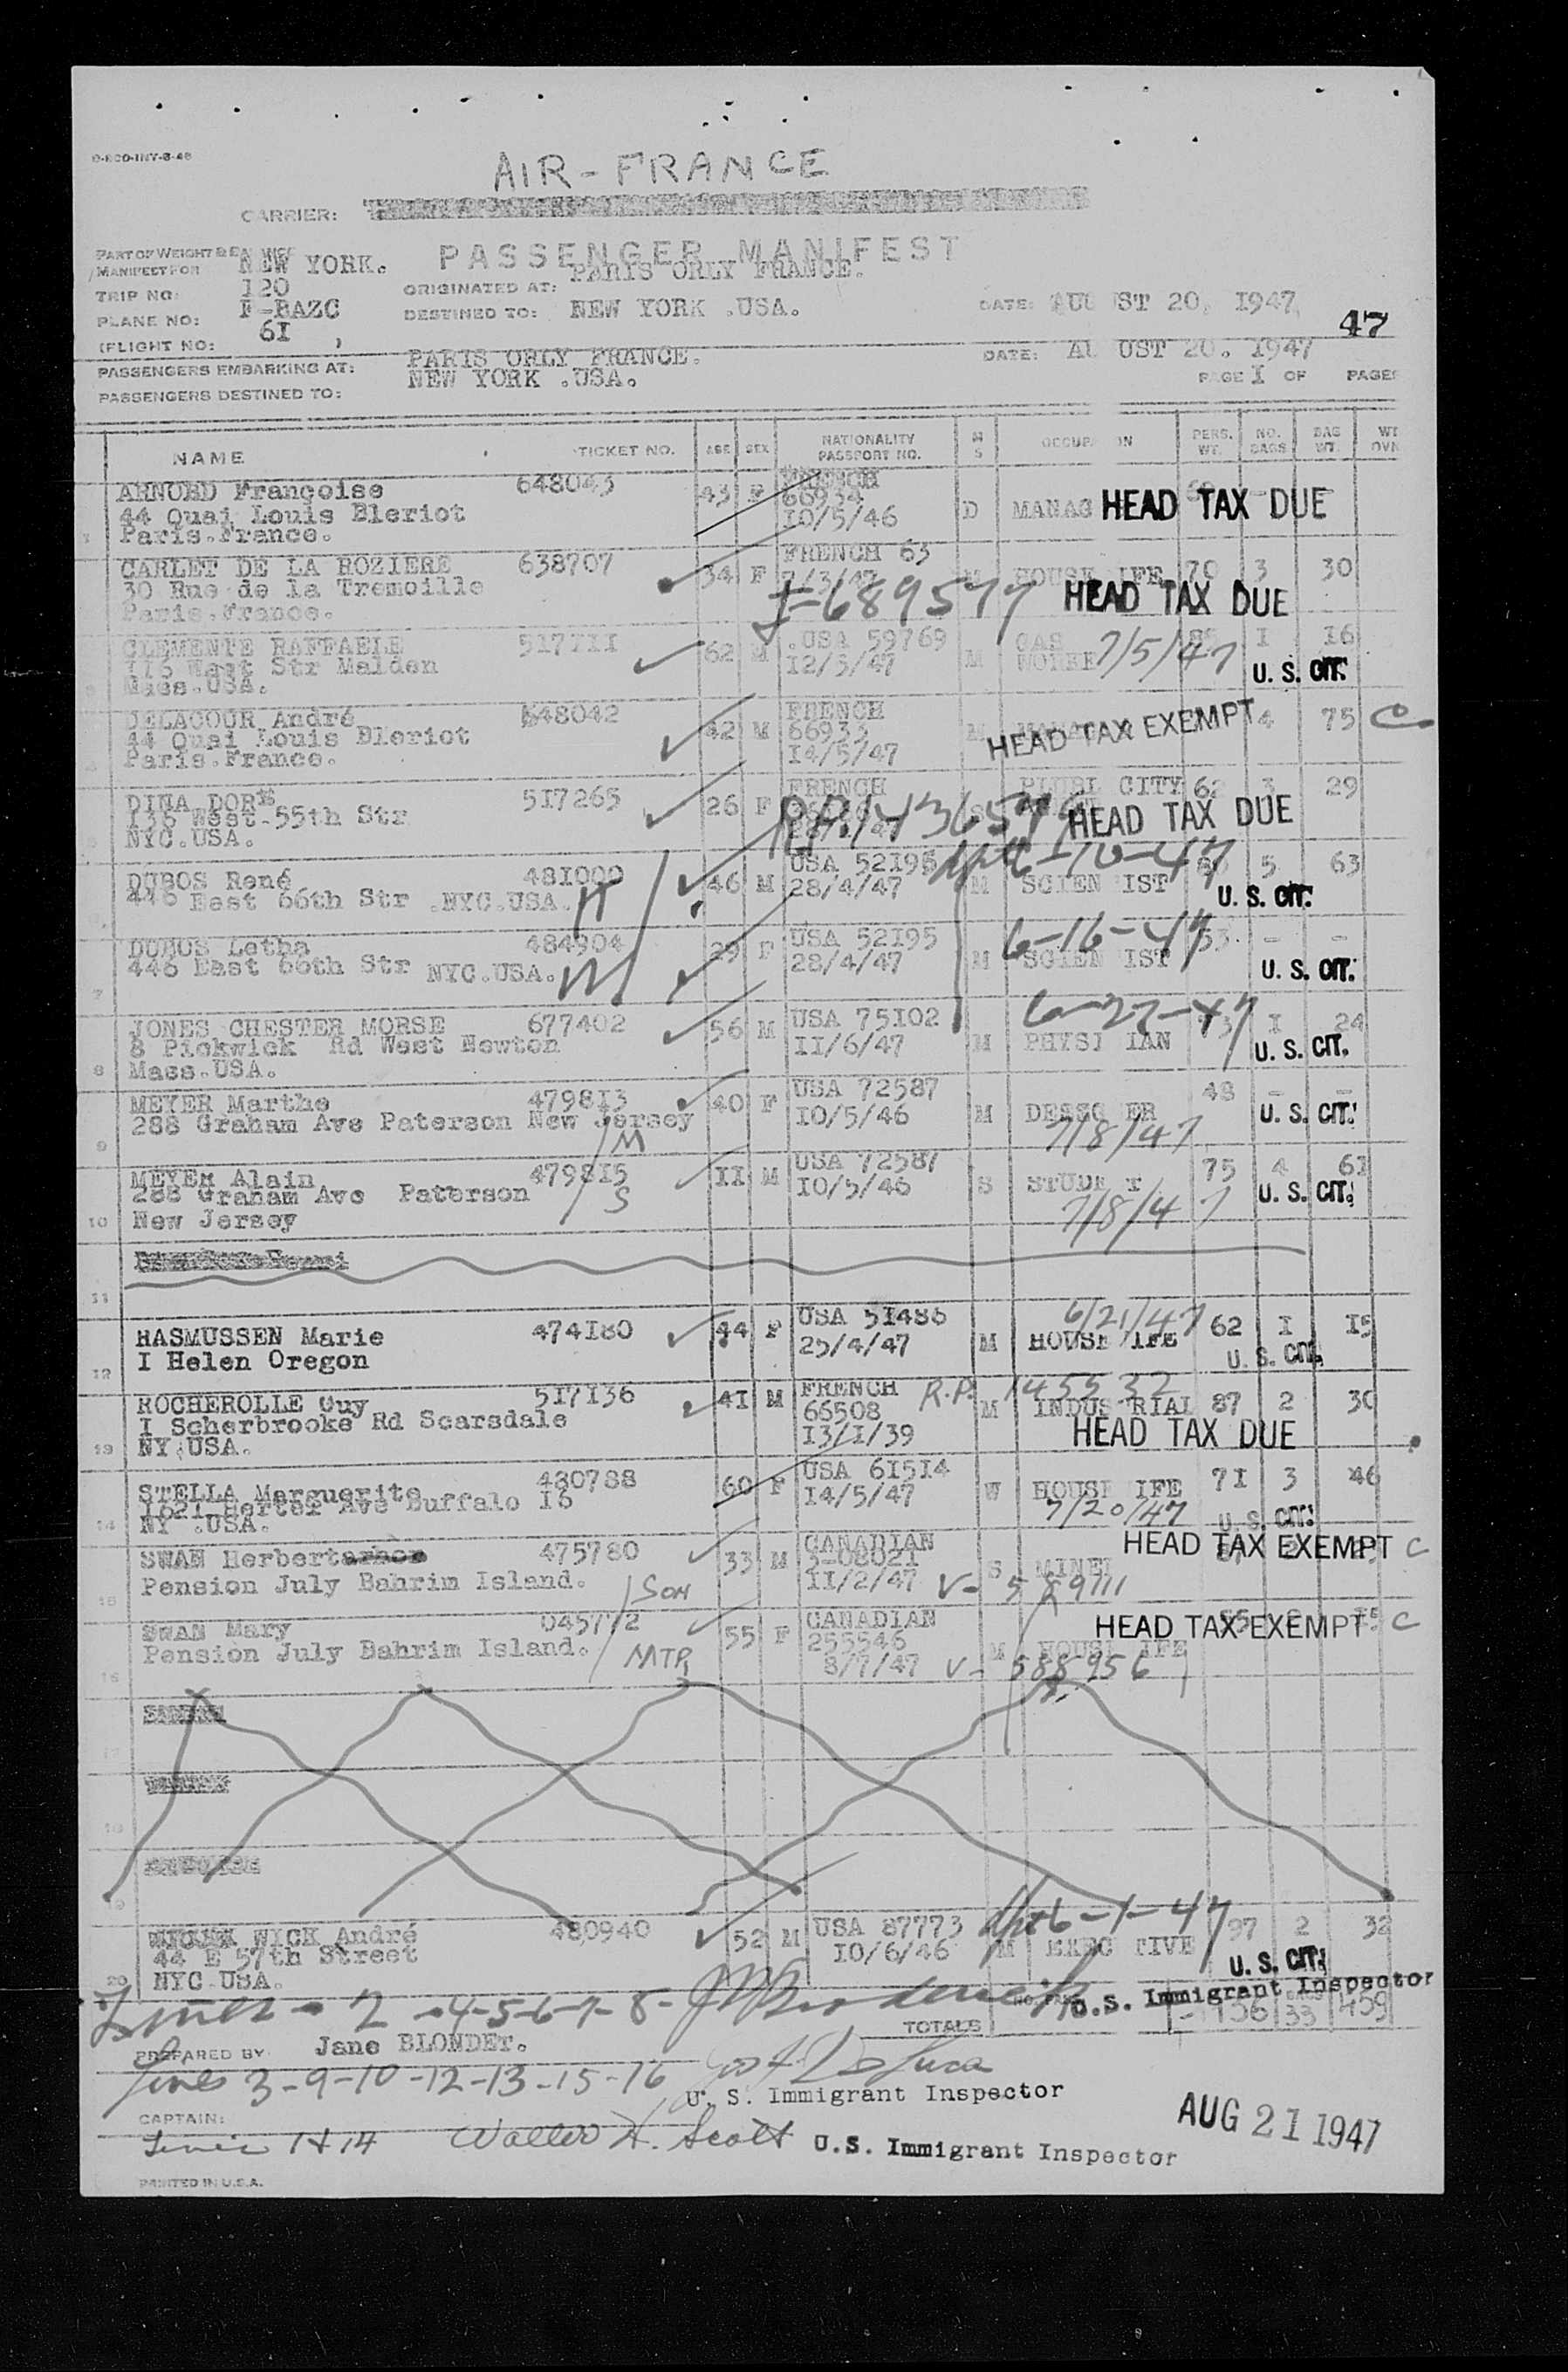 AIR-FRANCE
CARRIER:
PASSENGER MANIFEST
MANIFEST FOR NEW YORK.
ORIGINATED AT: PARIS ORLY FRANCE.
TRIP NO: 120
DESTINED TO: NEW YORK .USA. DATE: AUGUST 20, 1947
PLANE NO: F-BAZC
(FLIGHT NO: 6I 47
PASSENGERS EMBARKING AT: PARIS ORLY FRANCE. DATE: AU UST 20. 1947
PASSENGERS DESTINED TO: NEW YORK .USA. PAGE I OF PAGES
NAME TICKET NO. AGE SEX NATIONALITY PASSPORT NO. M S OCCUP ON PERS. WT. NO. BAGS BAG WT.
ARNOUD Françoise 648043 43 F FRENCH
44 Quai Louis Bleriot 66934 D MANAG HEAD TAX DUE
Paris.France. 10/5/46
CARLET DE LA ROZIERE 638707 34 F FRENCH 63 M HOUSE IFE 70 3 30
30 Rue de la Tremoille I-689577 HEAD TAX DUE
Paris.France.
CLEMENTE RAFFAELE 517III 62 M .USA 59769 M GAS 7/5/47 I I6
II5 West Str Malden I2/3/47 WORKE U. S. CIT.
Mass.USA.
DELACOUR André 648042 42 M FRENCH M HEAD TAX EXEMPT 4 75 C
44 Quai Louis Bleriot 66933
Paris.France. I4/5/47
DINA DORE 517265 26 F FRENCH CITY 62 3 29
136 West-55th Str HEAD TAX DUE
NYC.USA.
DUBOS René 481000 46 M USA 52196 M SCIEN IST 5 63
446 East 66th Str .NYC.USA. 28/4/47 U. S. CIT.
DUBOS Letha 484904 29 F USA 52I95 6-16-47 53 - -
446 East 66th Str NYC.USA. 28/4/47 M SCIEN IST U. S. CIT.
JONES CHESTER MORSE 677402 56 M USA 75I02 6-27-47 I 24
8 Pickwick Rd West Newton II/6/47 M PHYSI IAN U. S. CIT.
Mass.USA.
MEYER Marthe 4798I3 40 F USA 72587 48 - -
288 Graham Ave Paterson New Jersey 10/5/46 M U. S. CIT.
M 7/8/47
MEYER Alain 4798I5 II M USA 72587 S STUDE T 75 4 61
288 Graham Ave Paterson S I0/5/46 U. S. CIT.
New Jersey 7/8/47
RASMUSSEN Marie 474I80 44 F USA 51486 6/21/47 62 I I5
I Helen Oregon 25/4/47 M HOUSE IFE U. S. CIT.
ROCHEROLLE Guy 5I7I36 4I M FRENCH R.P. 1455532 M INDUS RIAL 87 2 30
I Scherbrooke Rd Scarsdale 66508 HEAD TAX DUE
NY.USA. I3/I/39
STELLA Marguerite 430788 60 F USA 6I5I4 W HOUSE IFE 7I 3 46
1621 Herter Ave Buffalo I6 I4/5/47 7/20/47
NY .USA. U. S. CIT.
SWAN Herbert 475780 33 M CANADIAN S MINE HEAD TAX EXEMPT C
Pension July Bahrim Island. Son 3-08021
II/2/47 V-589711
SWAN Mary 045772 55 F CANADIAN M HOUSE IFE HEAD TAX EXEMPT C
Pension July Bahrim Island. 255546
8/7/47 V-588956
WICK André 480940 52 M USA 87773 6-1-47 97 2 32
44 E 57th Street I0/6/46 M EXEC TIVE U. S. CIT.
NYC.USA.
Lines - 2 -4-5-6-7-8- U.S. Immigrant Inspector
TOTALS 33 459
PREPARED BY Jane BLONDET.
Lines 3-9-10-12-13-15-16
U. S. Immigrant Inspector
CAPTAIN: AUG 21 1947
Lines 1 & 14 Walter H. Scott U.S. Immigrant Inspector
PRINTED IN U.S.A.